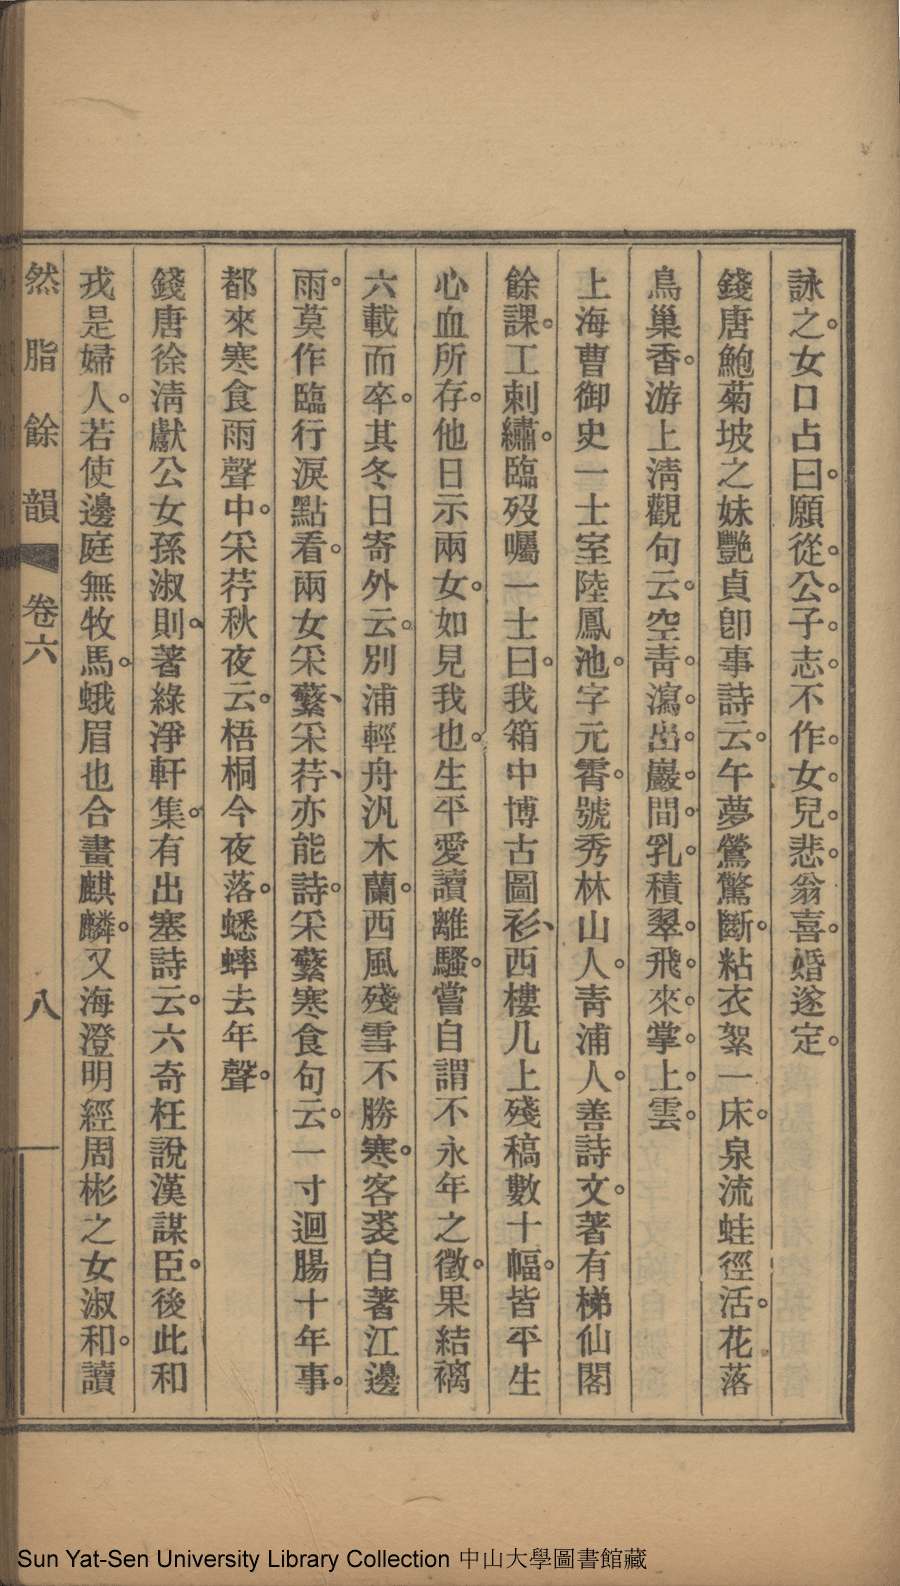 詠之。女口占曰。願從。公。子。志。不作。女。兒。悲。翁喜。婚遂定。
錢唐鮑菊坡之妹艷貞卽事詩云。午夢鶯驚斷。粘衣絮一床。泉流蛙徑活。花落
鳥巢香。游上淸觀句云。空靑。瀉。出。巖。間。乳。積翠。飛。來。掌。上。雲。
上海曹御史一士室陸鳳池。字元霄。號秀林山人。靑浦人。善詩文。著有梯仙閣
餘課。工刺繡。臨歿囑一士曰。我箱中博古圖衫、西樓几上殘稿數十幅。皆平生
心血所存。他日示兩女。如見我也。生平愛讀離騷。嘗自謂不永年之徵。果結褵
六載而卒。其冬日寄外云。別浦輕舟汎木蘭。西風殘雪不勝寒。客裘自著江邊
雨。莫作臨行淚點看。兩女采蘩、采荇、亦能詩。采蘩寒食句云。一寸迴腸十年事。
都來寒食雨聲中。采荇秋夜云。梧桐今夜落。蟋蟀去年聲。
錢唐徐淸獻公女孫淑則。著綠淨軒集。有出塞詩云。六奇枉說漢謀臣。後此和
戎是婦人。若使邊庭無牧馬。蛾眉也合畫麒麟。又海澄明經周彬之女淑和。讀
然脂餘韻 卷六 八
Sun Yat-Sen University Library Collection 中山大學圖書館藏